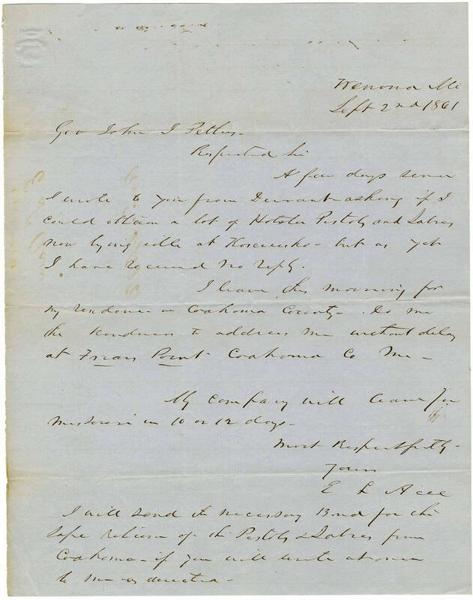 Winona Mi
Sept 2nd 1861
Gov John J Pettus
Respected Sir
A few days since
I wrote to you from Durant asking if I
could obtain a lot of Holster Pistols and Sabres
now lying idle at Kosciusko - but as yet
I have received no reply.
I leave this morning for
my residence in Coahoma County - Do me
the kindness to address me without delay
at Friars Point Coahoma Co Mi -
My company will leave for
Missouri in 10 or 12 days -
Most Respectfully
Yours
E L Acee
I will send the necessary Bond for the
safe return of the Pistols & Sabres from
Coahoma - if you will write
to me as directed -